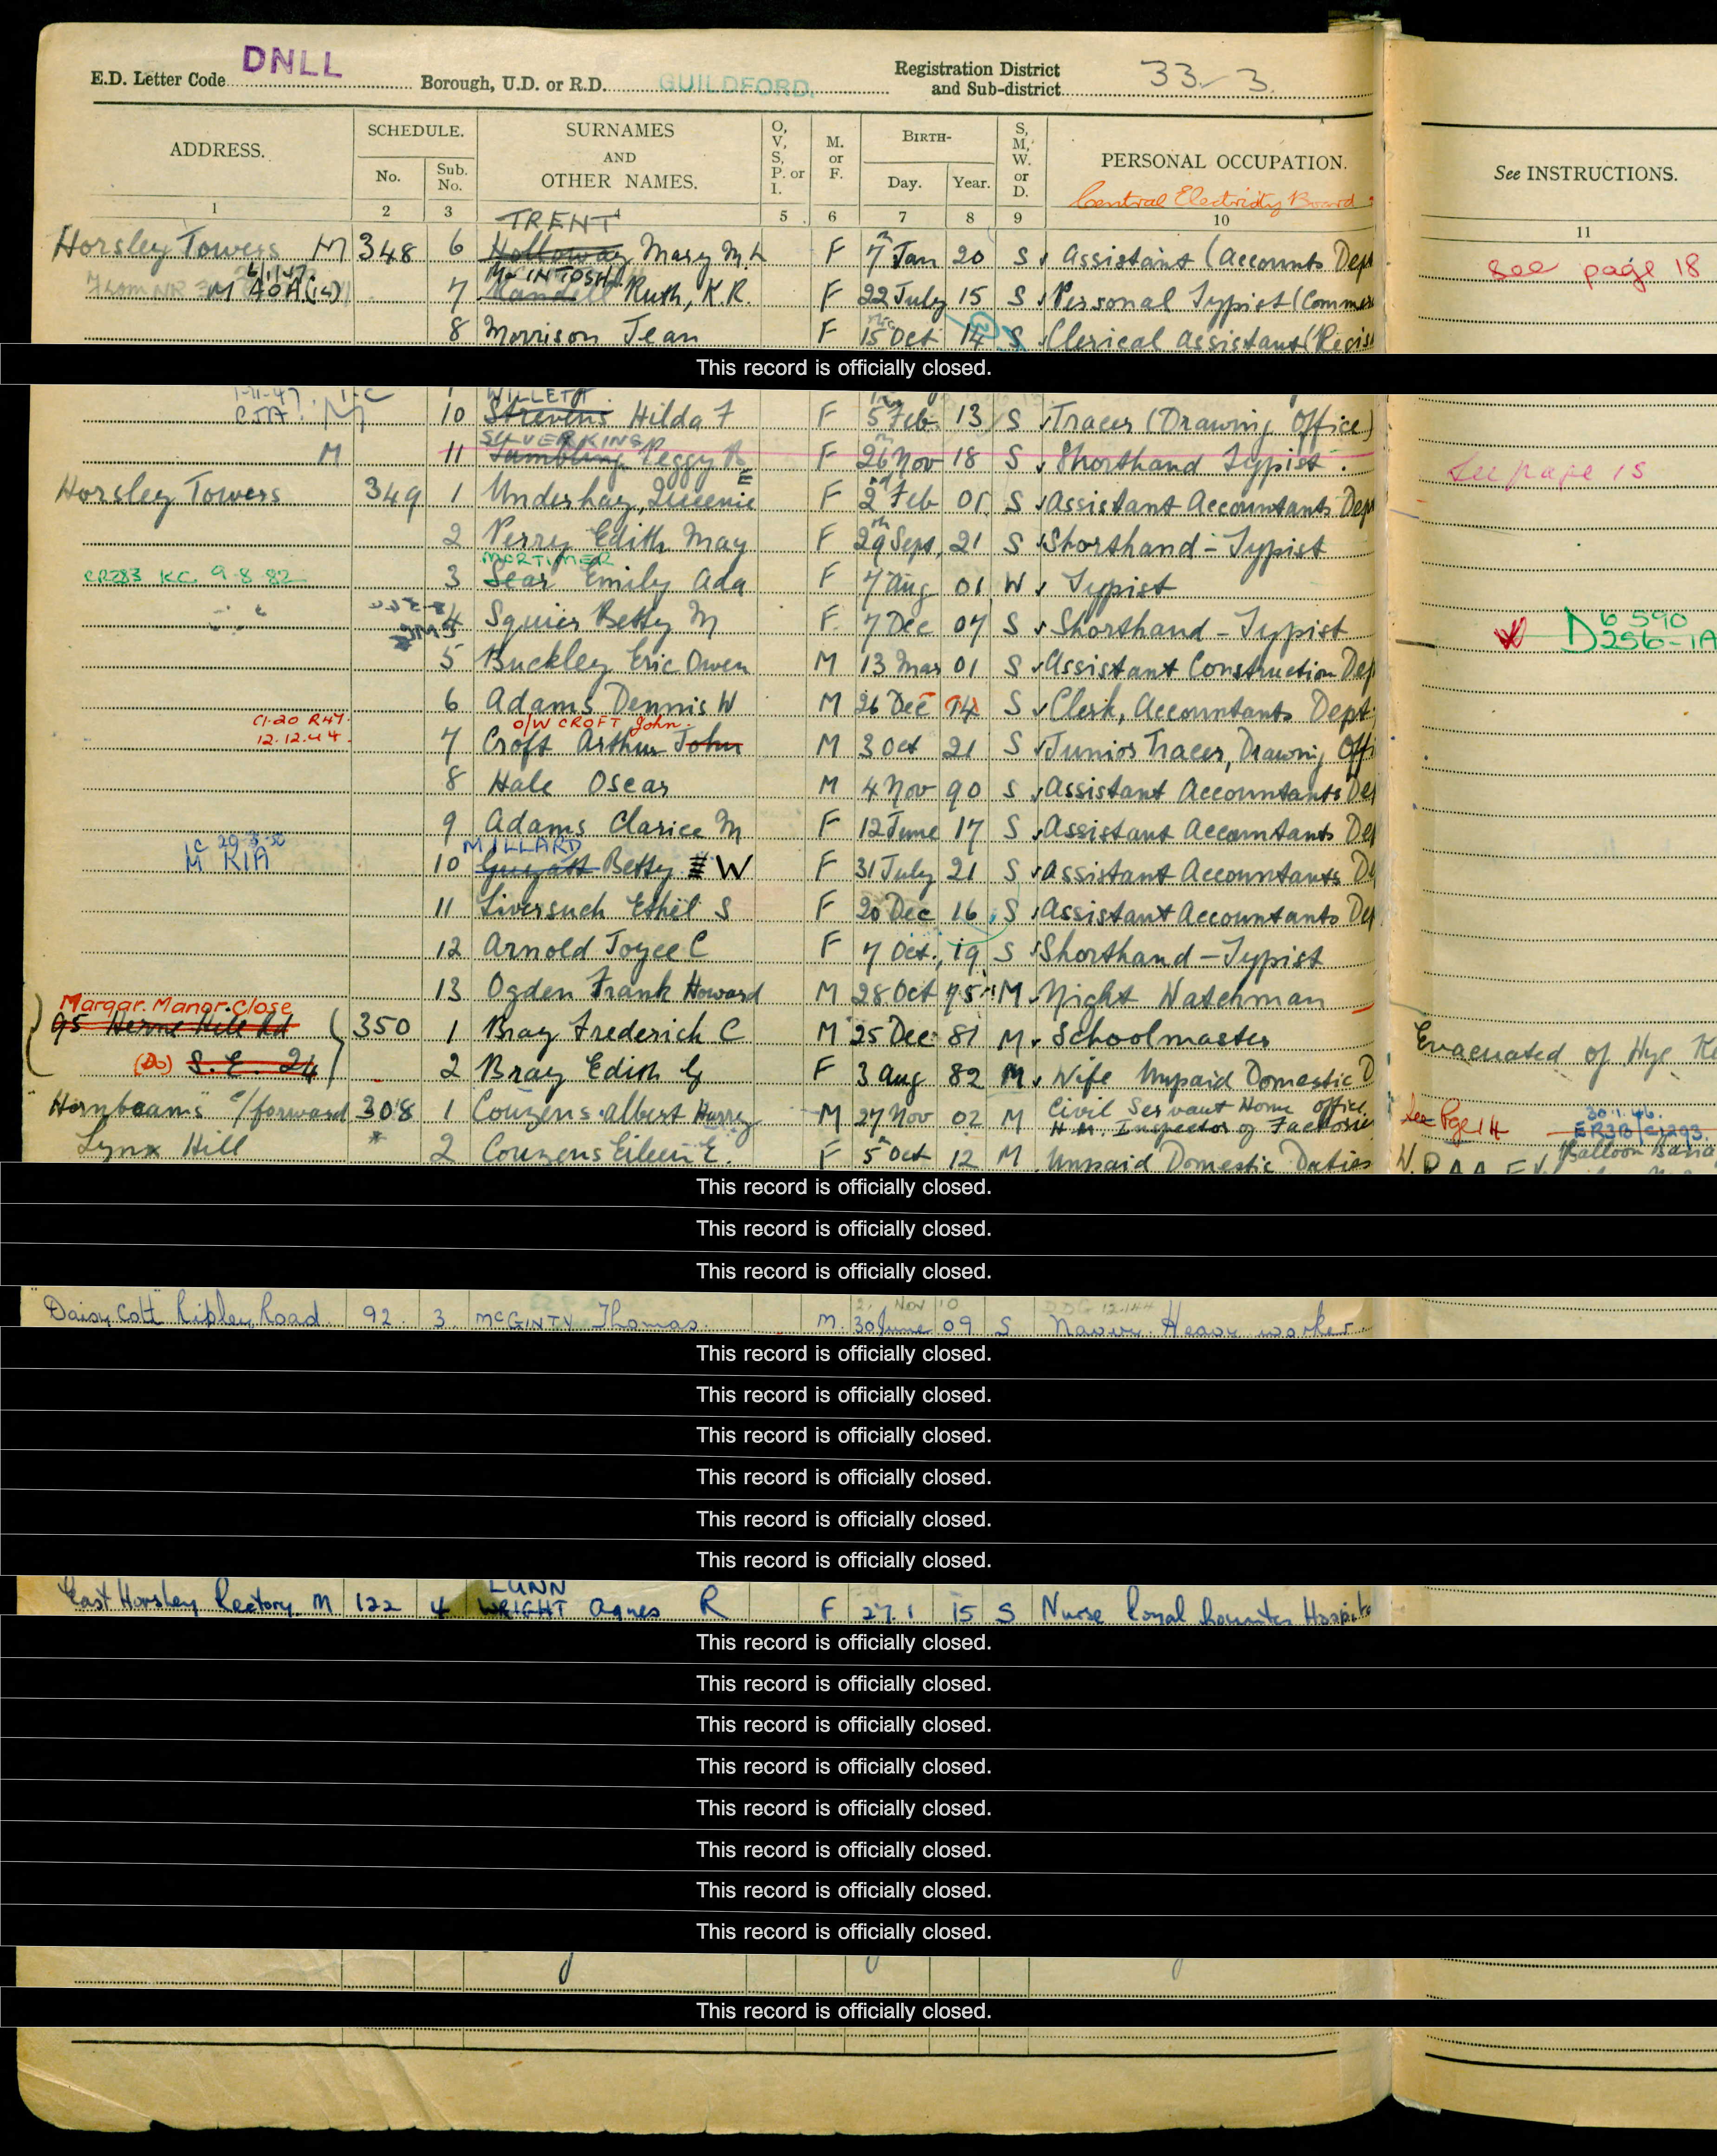 E.D. Letter Code DNLL Borough, U.D. or R.D. GUILDFORD. Registration District and Sub-district 33-3
ADDRESS. SCHEDULE. No. Sub. No. SURNAMES AND OTHER NAMES. O, V, S, P. or I. M. or F. BIRTH- Day. Year. S, M, W. or D. PERSONAL OCCUPATION. See INSTRUCTIONS.
Central Electricity Board
1 2 3 5 6 7 8 9 10 11
TRENT
Horsley Towers M 348 6 Holloway Mary M. F 7 Jan 20 S Assistant (Accounts Dept see page 18
McINTOSH
M 40A 7 Ruth, K R. F 22 July 15 S Personal Typist (Commer
8 Morrison Jean F 15 Oct 14 S Clerical Assistant (Regis
This record is officially closed.
1-11-47
WILLETT
CJA 10 Strevens Hilda F F 5 Feb 13 S Tracer (Drawing Office)
SILVER KING
M 11 Tambling Peggy F 26 Nov 18 S Shorthand Typist. See page 15
Horsley Towers 349 1 Underhay, Queenie E F 2 Feb 01 S Assistant Accountants Dep
2 Perry Edith May F 29 Sept. 21 S Shorthand-Typist
MORTIMER
CR283 KC 9-8-82 3 Sear Emily Ada F 7 Aug 01 W Typist
4 Squier Betty M F 7 Dec 07 S Shorthand-Typist D 6 590
D256-1A
5 Buckley Eric Owen M 13 Mar 01 S Assistant Construction Dep
6 Adams Dennis W M 26 Dec 14 S Clerk, Accountants Dept
O/W CROFT John
C1.20 R47.
12.12.44.
7 Croft Arthur John M 3 Oct 21 S Junior Tracer, Drawing Offi
8 Hale Oscar M 4 Nov 90 S Assistant Accountants De
9 Adams Clarice M F 12 June 17 S Assistant Accountants De
MILLARD
M KIA 10 Betty W F 31 July 21 S Assistant Accountants D
11 Liversuch Ethel S F 20 Dec 16 S Assistant Accountants De
12 Arnold Joyce C F 7 Oct. 19 S Shorthand-Typist
13 Ogden Frank Howard M 28 Oct 75 M Night Watchman
Margar. Manor. Close
95 Herne Hill Rd 350 1 Bray Frederick C M 25 Dec 81 M Schoolmaster Evacuated of Hye
(Do) S.E. 24 2 Bray Edith G F 3 Aug 82 M Wife Unpaid Domestic D
"Hornbeams" c/forward 308 1 Couzens Albert Harry M 27 Nov 02 M Civil Servant Home Office See Pge 14 30.1.46.
H.M. Inspector of Factories ER3B C1293.
Lynx Hill 2 Couzens Eileen E. F 5 Oct 12 M Unpaid Domestic Duties
This record is officially closed.
This record is officially closed.
This record is officially closed.
2. Nov 10
"Daisy Cott" Ripley Road 92. 3. McGINTY Thomas. M. 30 June 09 S Navvy. Heavy worker
This record is officially closed.
This record is officially closed.
This record is officially closed.
This record is officially closed.
This record is officially closed.
This record is officially closed.
LUNN
East Horsley Rectory M 122 4 WRIGHT Agnes R F 27.1 15 S Nurse Royal Hospital
This record is officially closed.
This record is officially closed.
This record is officially closed.
This record is officially closed.
This record is officially closed.
This record is officially closed.
This record is officially closed.
This record is officially closed.
This record is officially closed.